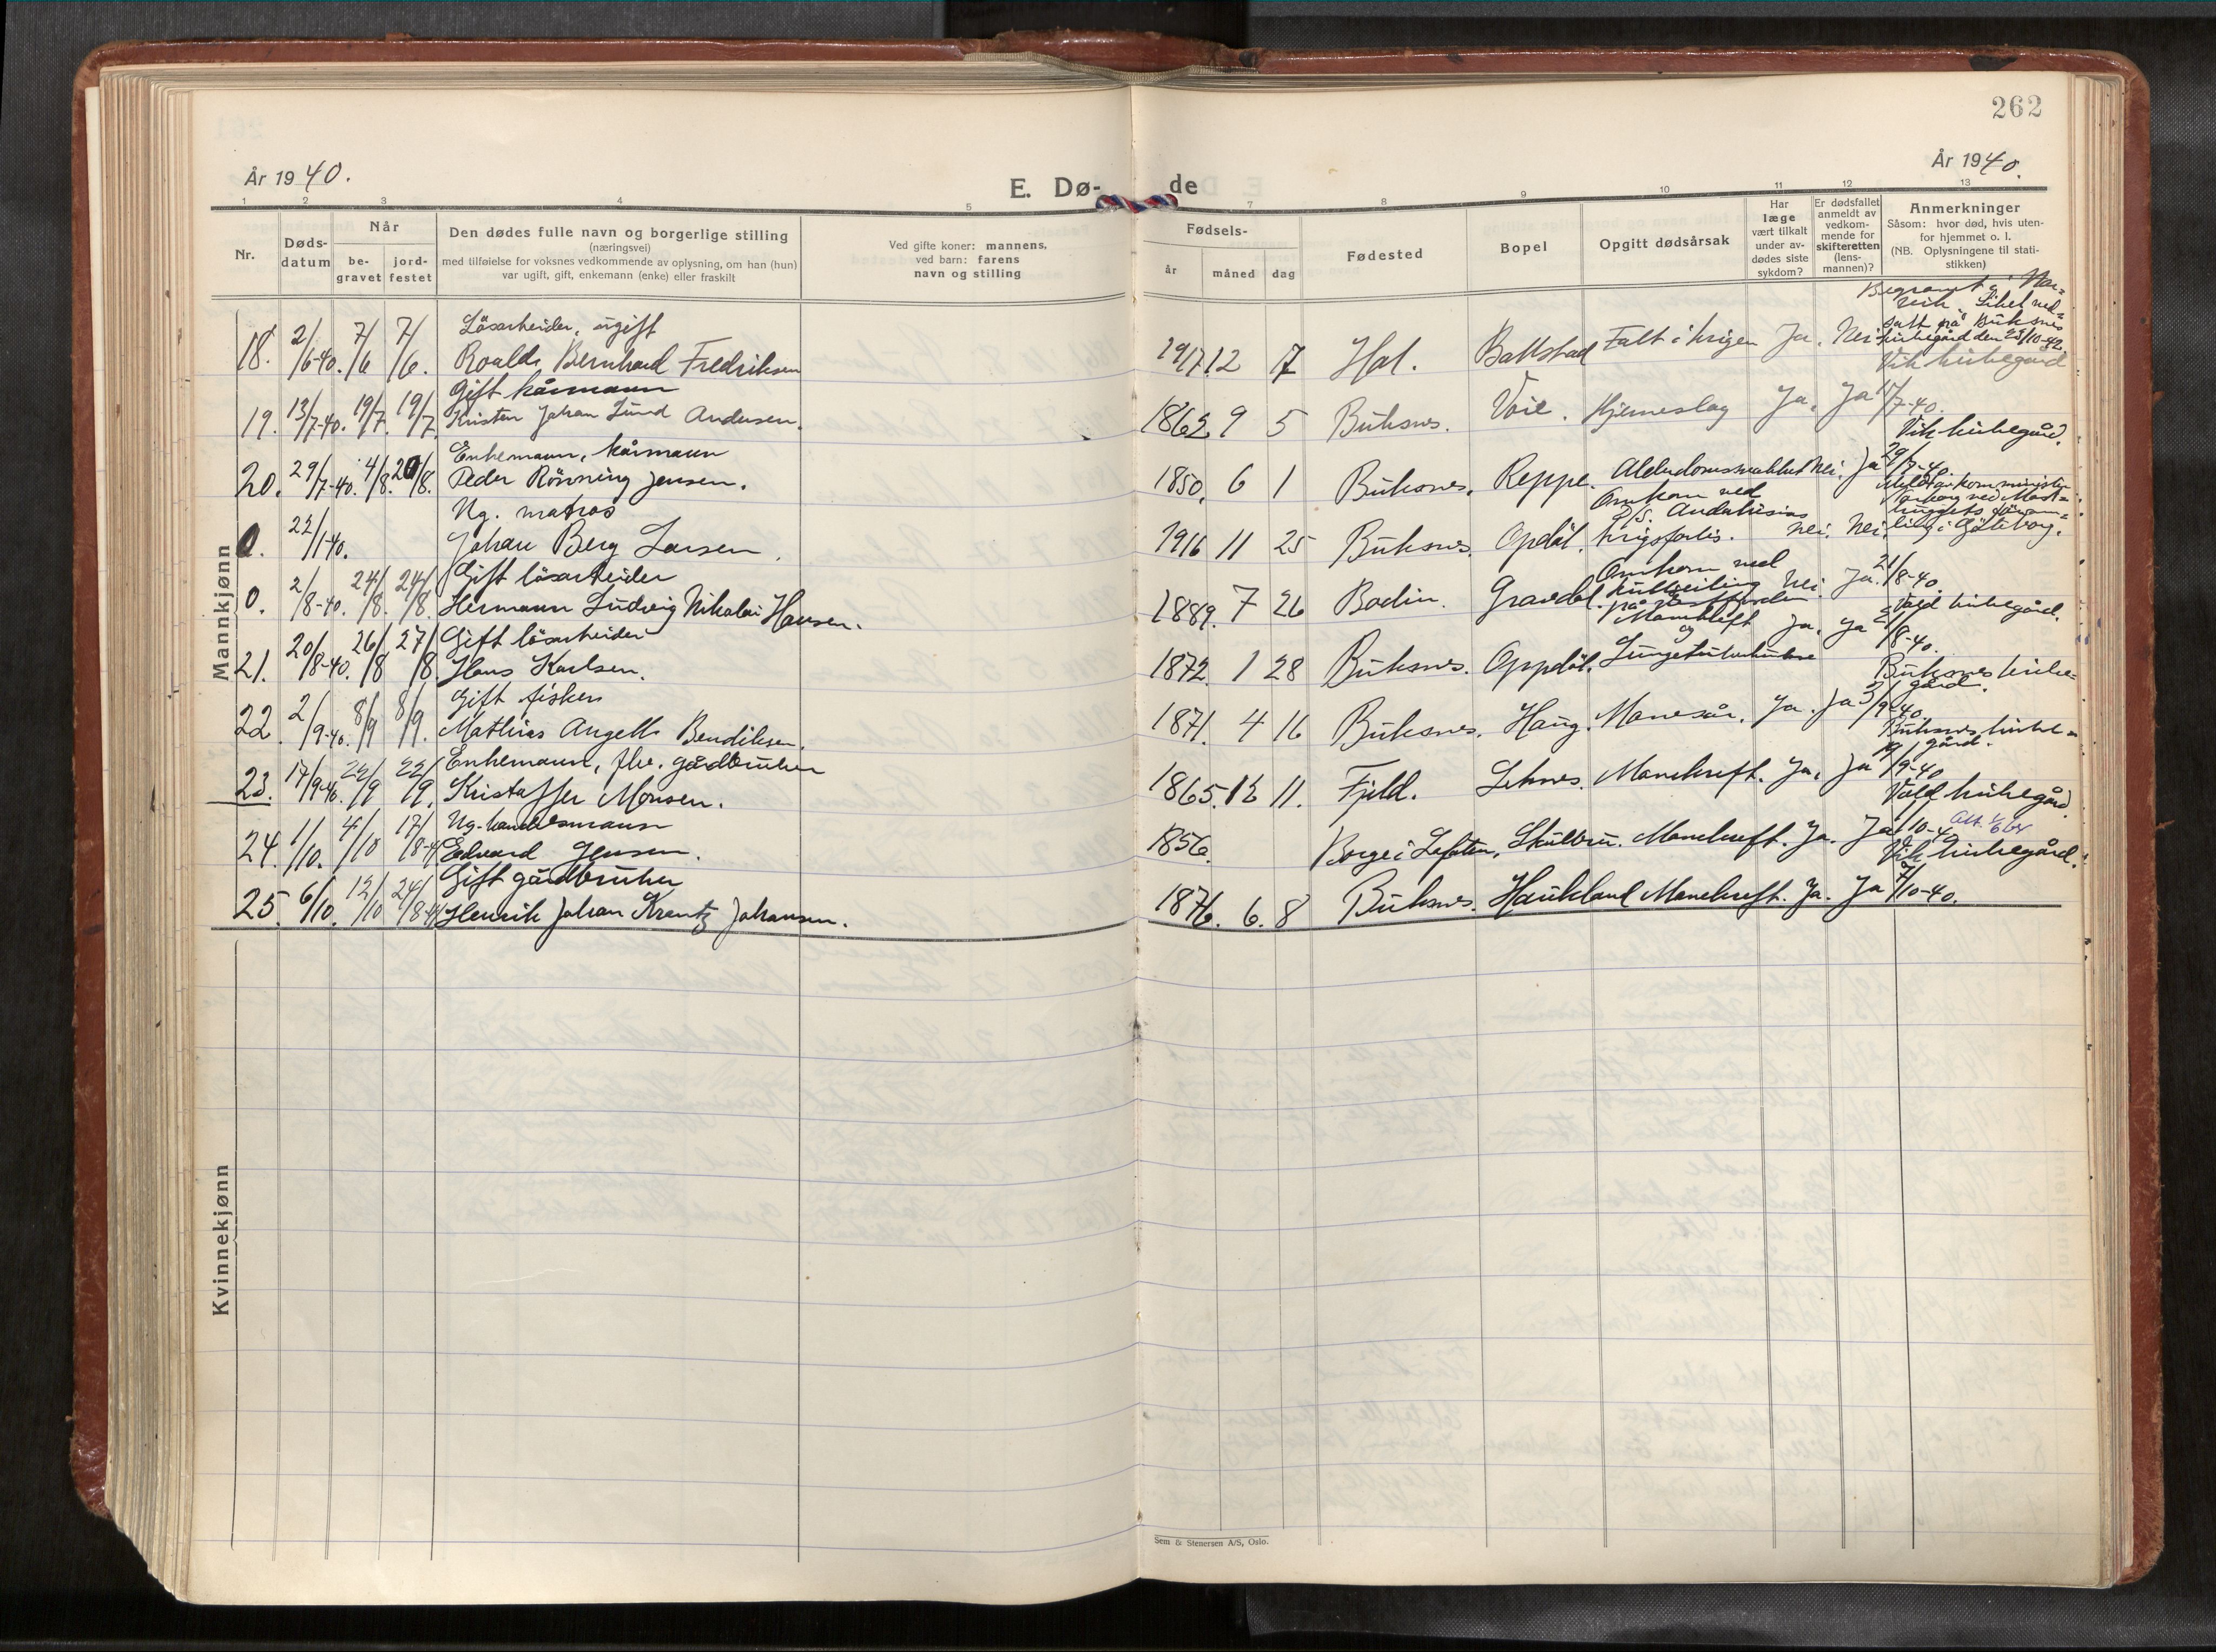 262
År 1940.
År 1940.
E. Dø- de
1 2 3 4 5 7 8 9 10 11 12 13
Nr.
Døds-
datum
Når
be-
gravet
jord-
festet
Den dødes fulle navn og borgerlige stilling
(næringsvei)
med tilføielse for voksnes vedkommende av oplysning, om han (hun)
var ugift, gift, enkemann (enke) eller fraskilt
Ved gifte koner: mannens,
ved barn: farens
navn og stilling
Fødsels-
år måned dag
Fødested
Bopel
Opgitt dødsårsak
Har
læge
vært tilkalt
under av-
dødes siste
sykdom?
Er dødsfallet
anmeldt av
vedkom-
mende for
skifteretten
(lens-
mannen)?
Anmerkninger
Såsom: hvor død, hvis uten-
for hjemmet o. l.
(NB. Oplysningene til stati-
stikken)
Mannkjønn
Løsarbeider, ugift
18. 2/6-40. 7/6 7/6. Roald Bernhard Fredriksen
1917. 12 7 Hol. Ballstad Falt i krigen Ja. Nei
Begravet i Nar-
vik. Liket ned-
satt på Buksnes
kirkegård den 25/10-42.
Gift kårmann
19. 13/7-40. 19/7. 19/7. Kristen Johan Lund Andersen.
1862 9 5 Buksnes. Voie. Hjerneslag Ja. Ja 17/7-40.
Vik kirkegård
Enkemann, kårmann
20. 29/7-40. 4/8. 20/8. Peder Rönning Jensen.
1850. 6 1 Buksnes. Reppe. Alderdomssvakhet Nei. Ja 29/7-40
Vik kirkegård.
Ug. matros
0. 22/1-40. Johan Berg Larsen.
1916 11 25 Buksnes. Opdöl. Omkom ved
D/S. Andalusias
krigsforlis. Nei. Nei.
ling i Göteborg.
Gift løsarbeider
0. 2/8-40. 24/8. 24/8. Hermann Ludvig Nikolai Hansen.
1889. 7 26 Bodin. Gravdal. Omkom ved
kullseiling
på Vestfjorden Nei. Ja. 21/8-40.
Gift løsarbeider
21. 20/8-40. 26/8 27/8. Hans Karlsen.
1872. 1 28 Buksnes. Oppdöl. Marekreft
og
Lungetuberkulose Ja. Ja 8-40.
Vold kirkegård.
Gift fisker
22. 2/9-40. 8/9 8/9. Mathias Angell Bendiksen.
1871. 4 16 Buksnes. Haug. Mavesår. Ja. Ja 3/9-40
Buksnes kirke-
gård.
Enkemann, fhv. gårdbruker
23. 17/9-40. 22/9 22/9. Kristoffer Monsen.
1865. 12 11. Fjeld. Leknes. Mavekreft. Ja. Ja 9-40
Buksnes kirke-
gård.
Ug. handelsmann
24. 1/10. 4/10 17/8-41 Edvard Jensen.
1856. Borge i Lofoten. Skulbru. Mavekreft. Ja. Ja 10-40
Vold kirkegård
Gift gårdbruker
25. 6/10. 12/10 24/8-41 Henrik Johan Krantz Johansen.
1876. 6. 8 Buksnes. Haukland Mavekreft. Ja. Ja 7/10-40.
Vik kirkegård.
Kvinnekjønn
Sem & Stenersen A/S, Oslo.